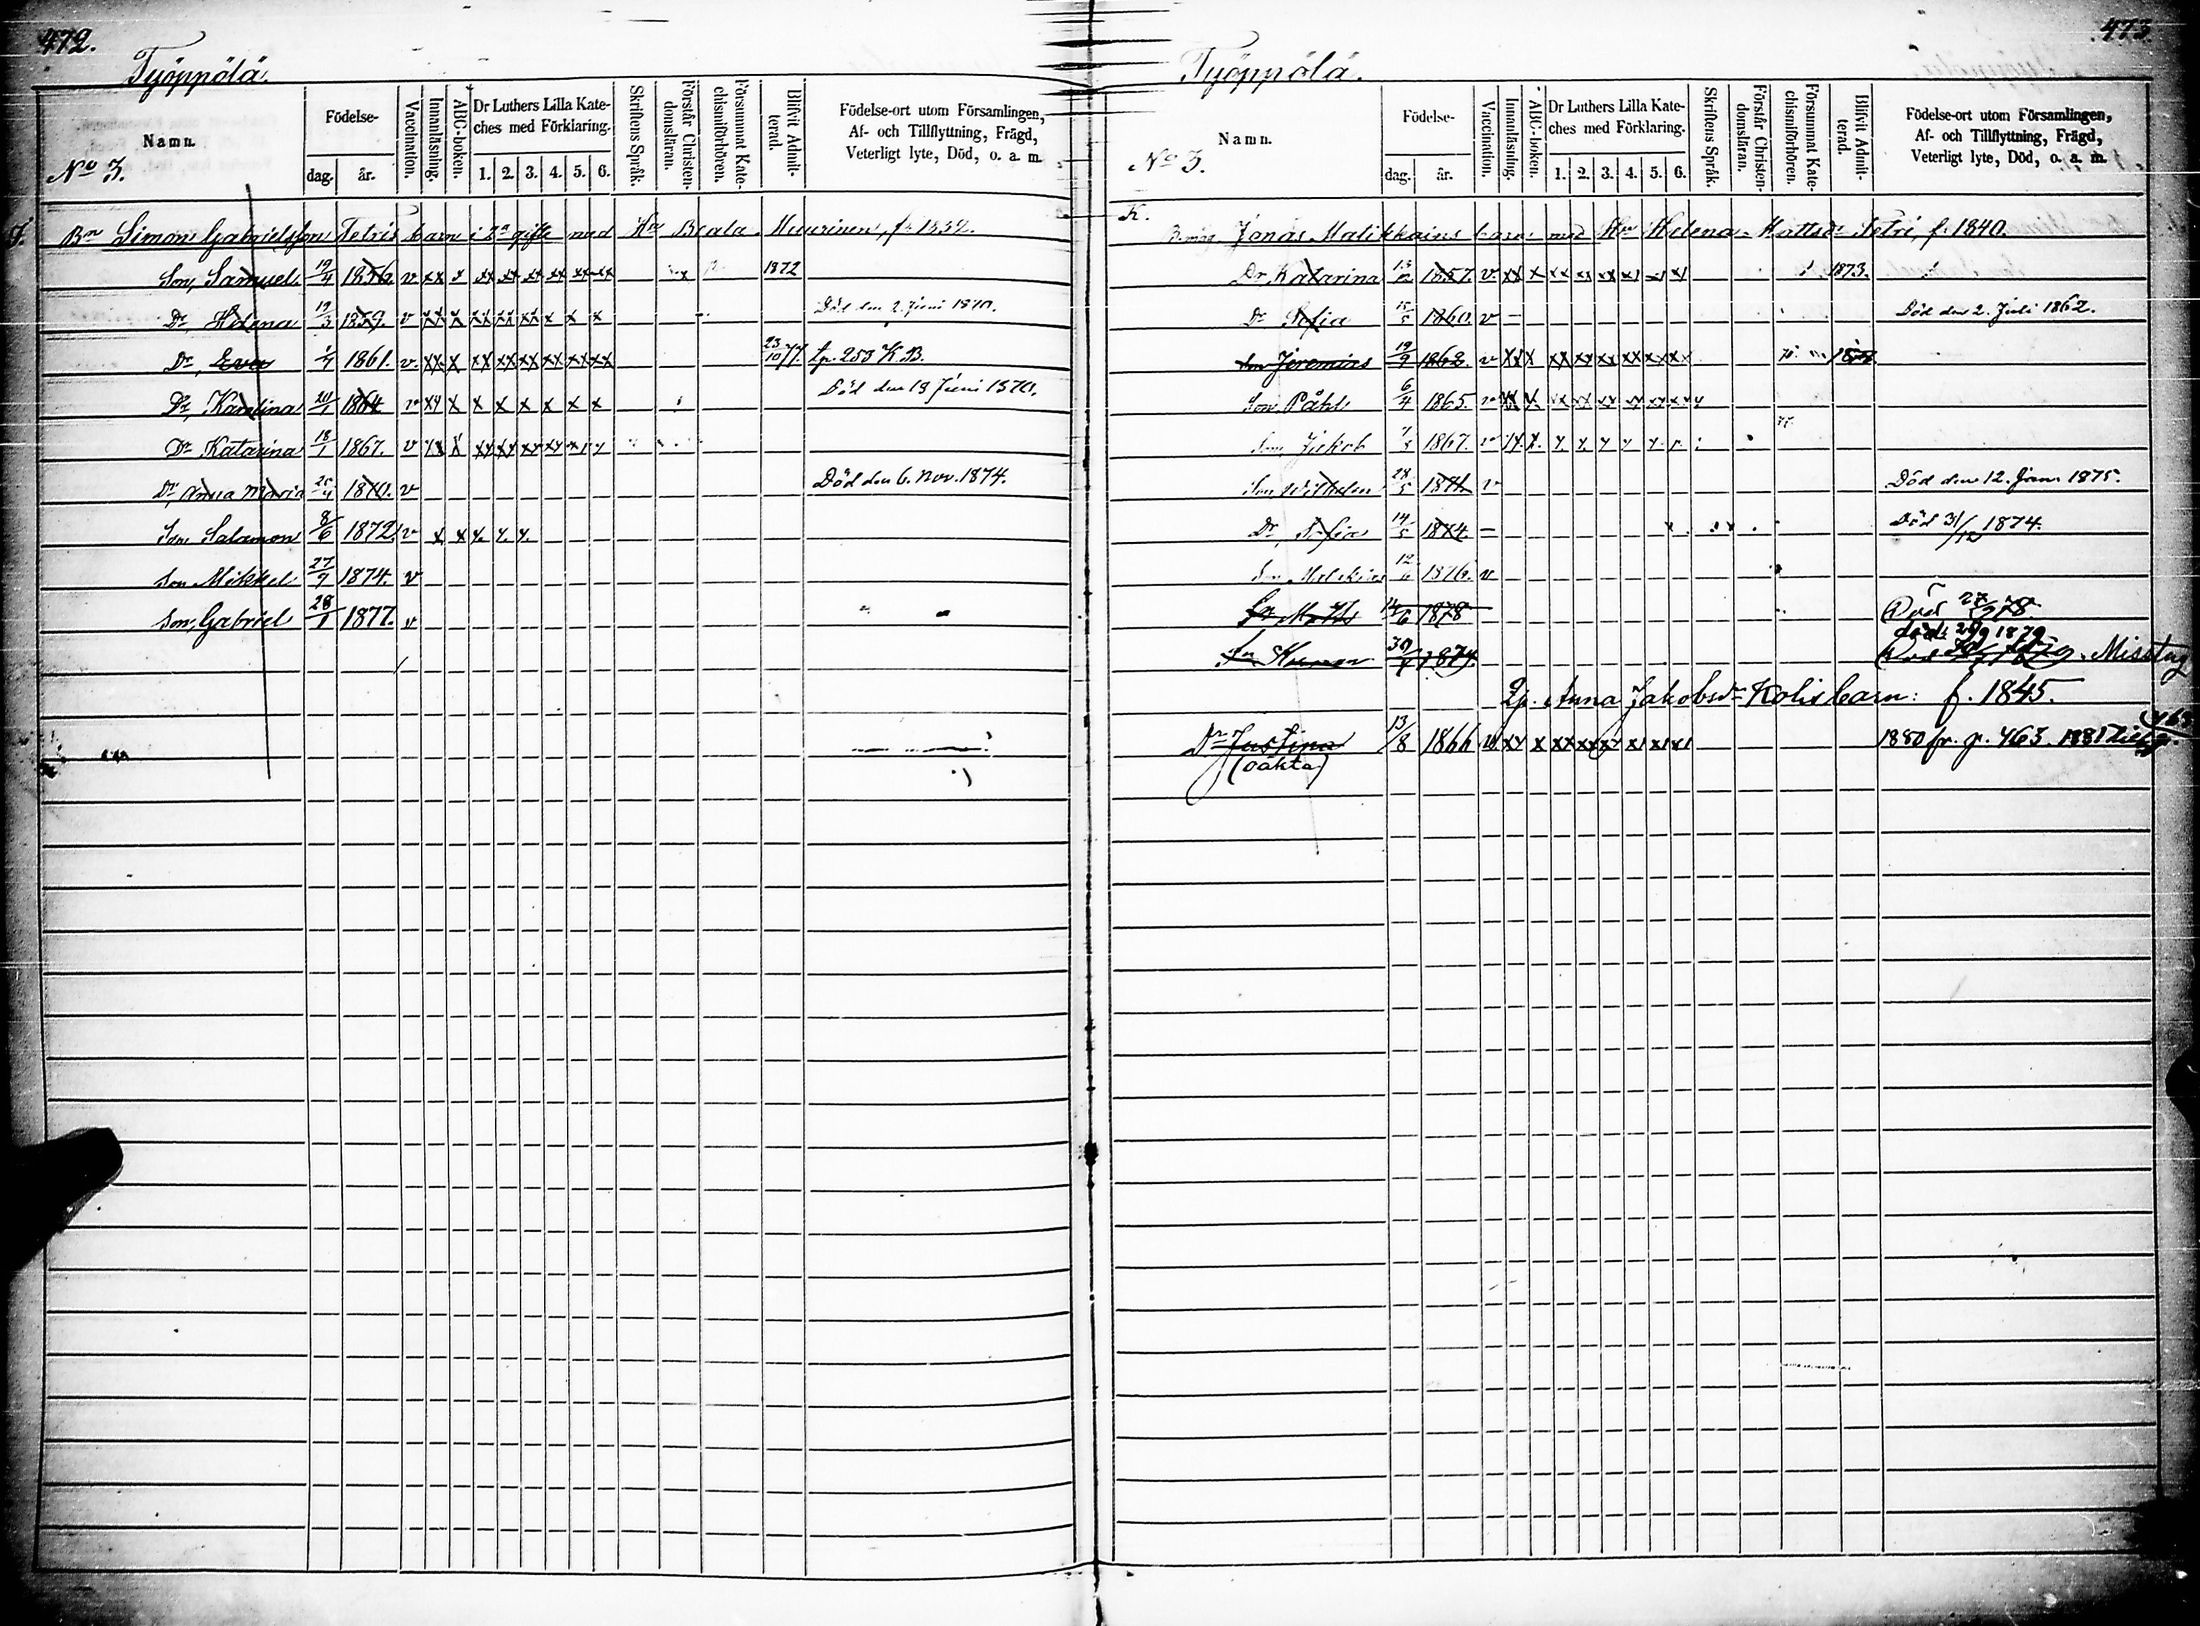 472.
Työppölä.
Namn.
No 3.
Födelse-
dag.
år.
Vaccination.
Innanläsning.
ABC-boken.
Dr Luthers Lilla Kate-
ches med Förklaring.
1. 2. 3. 4. 5. 6.
Skriftens Språk.
Förstår Christen-
domsläran.
Försummat Kate-
chismiförhören.
Blifvit Admit-
terad.
Födelse-ort utom Församlingen,
Af- och Tillflyttning, Frägd,
Veterligt lyte, Död, o. a. m.
Bn Simon Gabrielsson Tetris barn i 2a gifte med Hu Beata
Son, Samuel 19/4 1856 v xx x xx xx xx xx xx xx 1872
Dr, Helena 19/3 1859. v xx x xx xx xx x x x Död den 2. Juni 1870.
Dr, Eva 1861. v. xx x xx xx xx xx xx xx 23/10 77. Lp. 253 K.B.
Dr, Karolina 1864 v xx x x x x x x x Död den 19 Juni 1870.
Dr Katarina 18/1 1867. v
Dr Anna Maria 1870. v Död den 6. Nov. 1874.
Son Salamon 8/6 1872 v x x x x x
Son Mikkel 27/9 1874. v
Son, Gabriel 28/1 1877. v
473
Työppölä.
Namn.
No 3.
Födelse-
dag.
år.
Vaccination.
Innanläsning.
ABC-boken.
Dr Luthers Lilla Kate-
ches med Förklaring.
1. 2. 3. 4. 5. 6.
Skriftens Språk.
Förstår Christen-
domsläran.
Försummat Kate-
chismiförhören.
Blifvit Admit-
terad.
Födelse-ort utom Församlingen,
Af- och Tillflyttning, Frägd,
Veterligt lyte, Död, o. a. m.
K.
B.måg Jonas Malikkains barn med Hu Helena Mattsdr Tetri, f. 1840.
Dr Katarina 1857. v. xx x xx xx xx xx 1873.
Dr Sofia 15/5 1860. v – Död den 2. Juli 1862.
Son Jeremias 19/9 1862. v xx x xx xx xx xx
Son Påhl 6/4 1865. v
Son Jakob 1867. v
Son Wilhelm 28/5 1871 v Död den 12. Jan. 1875.
Dr, Sofia 14/5 1874. – Död 31/12 1874.
Son 12/6 1876. v
Sn Matts 14/6 1878 Död 27/7 78.
död: 29/9 1879
Sn 30/7 1879. Misstag
Lp. Anna Jakobsdr Kolis barn: f. 1845.
Dr Justina 13/8 1866 v xx x xx xx xx 1880 fr. p. 463. 1881 till p. 463
(oäkta)